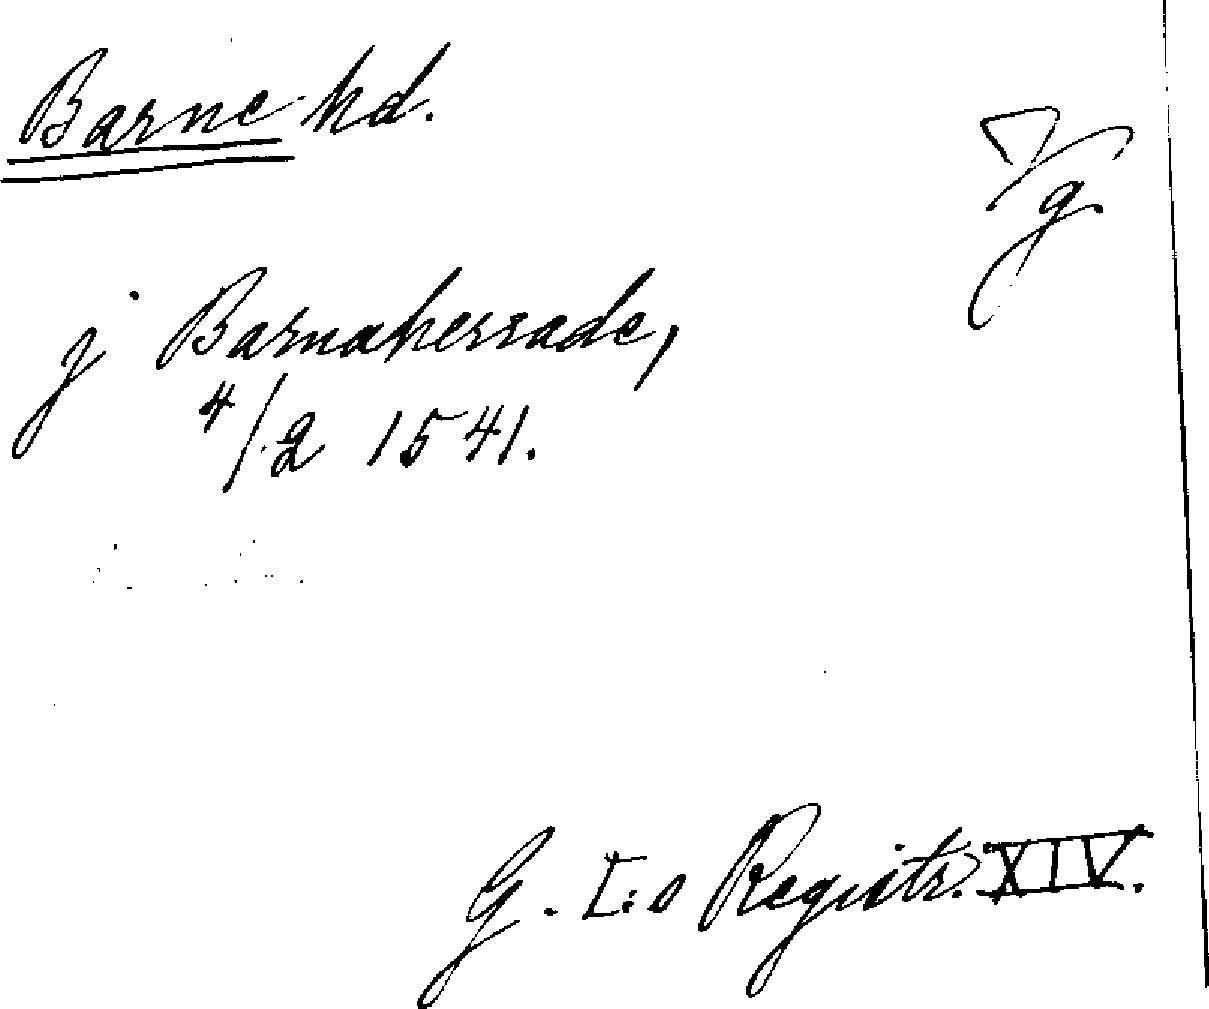 Barne hd.
Vg
j Barnaherrade,
4/2 1541.
G. I:s Registr. XIV.